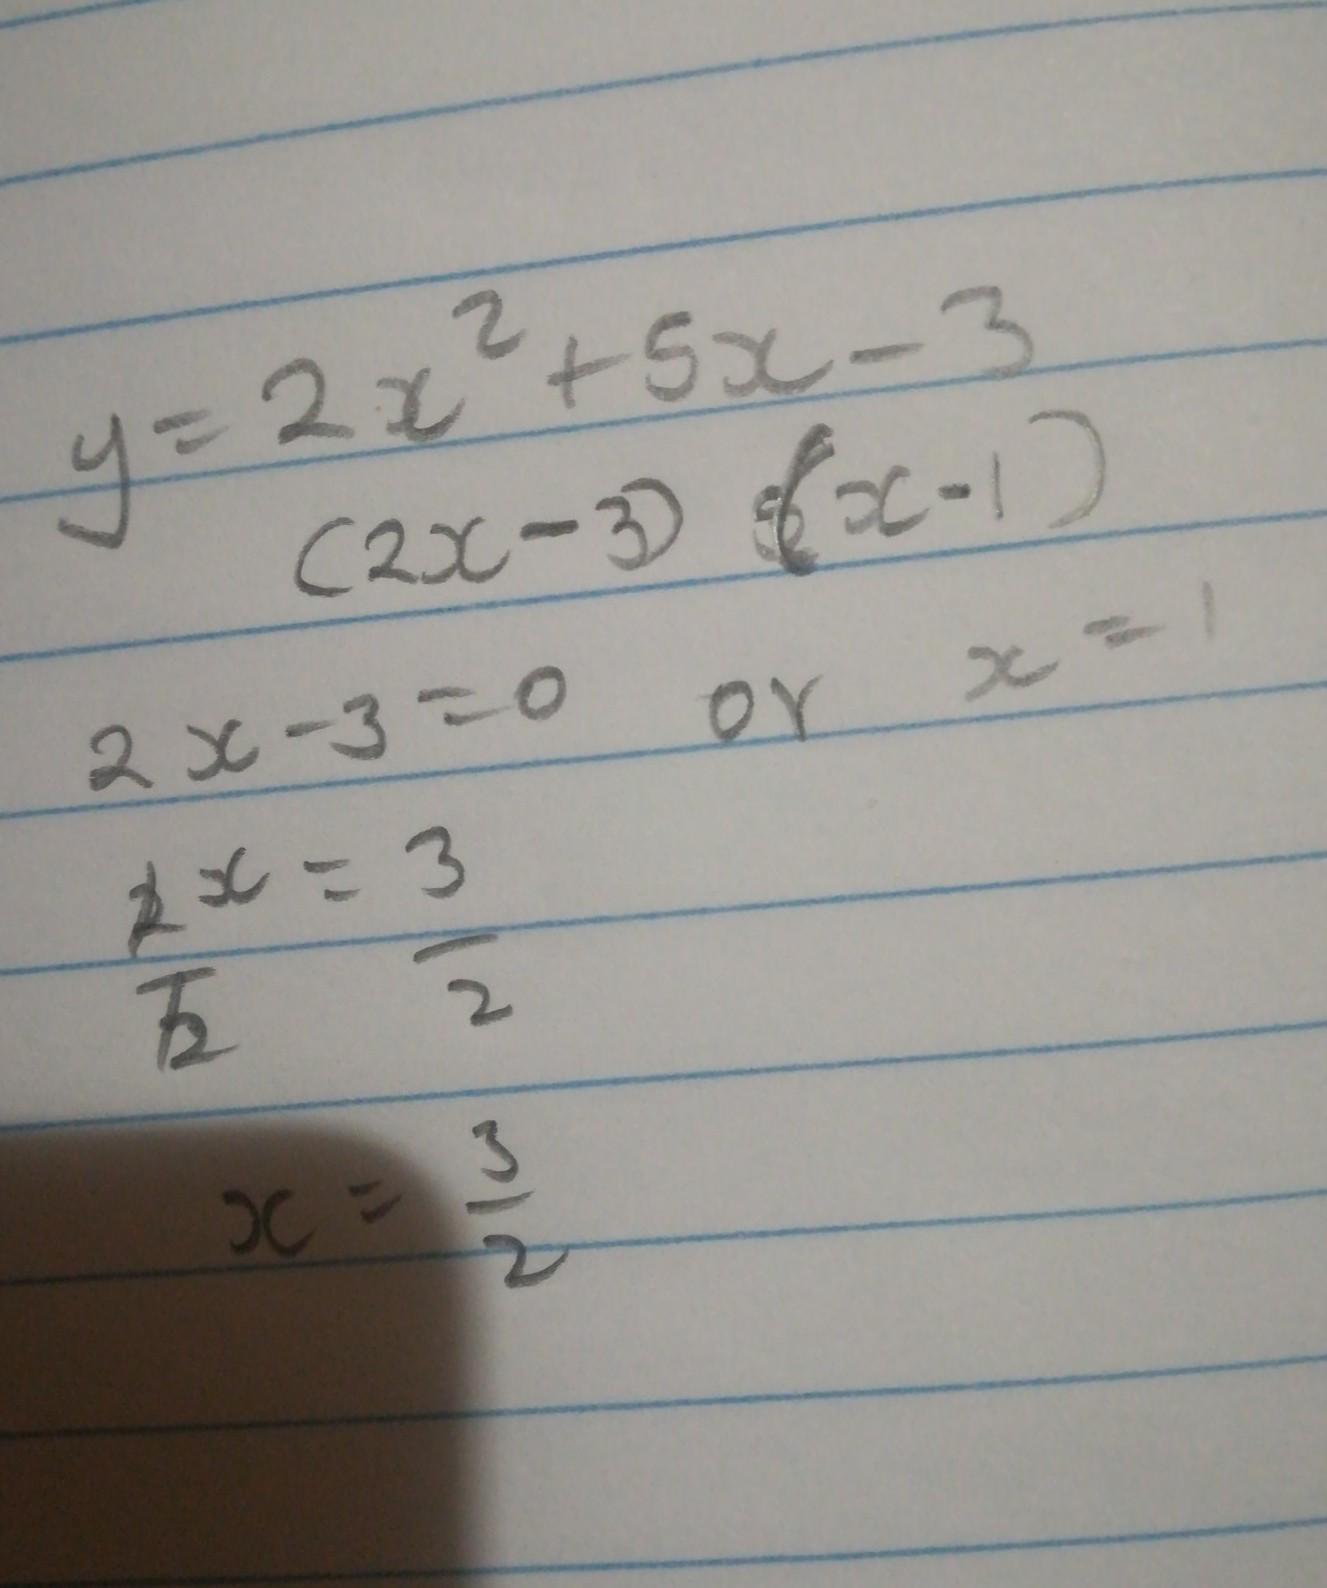 y = 2x² + 5x - 3
(2x - 3) (x - 1)
2x - 3 = 0 or x = 1
2x = 3
2 2
x = 3/2